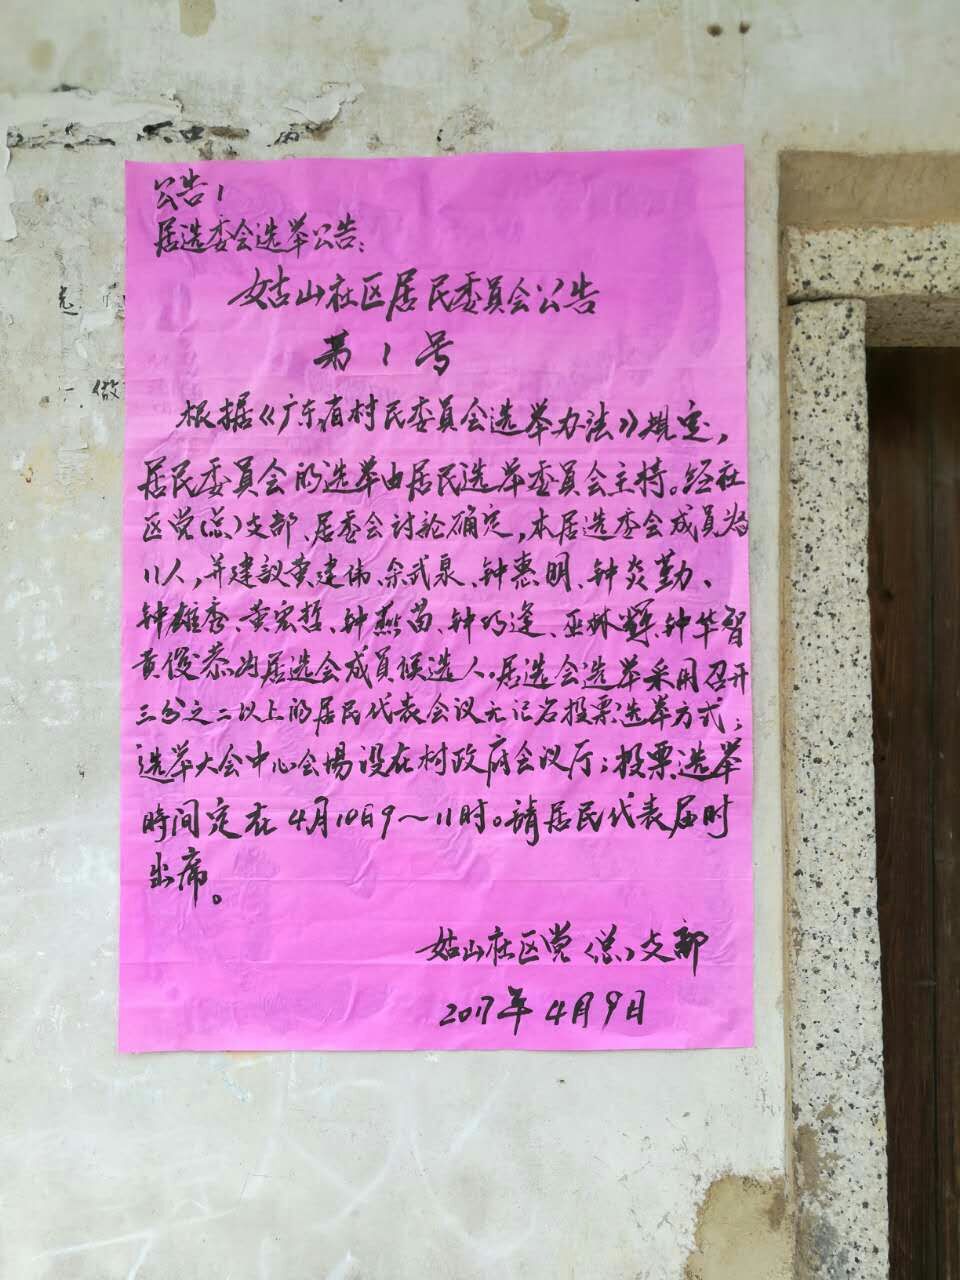 公告1
居选委会选举公告：
姑山社区居民委員会公告
第1号
根据《广东省村民委員会选举办法》规定，
居民委員会的选举由居民选举委員会主持。经社
区党（总）支部、居委会讨论确定，本居选委会成員为
11人，并建議黄建伟、余武泉、钟惠明、钟炎勤、
钟雄秀、黄宏哲、钟燕苗、钟巧逢、巫林、钟华智
黄俊恭为居选会成員候选人。居选会选举采用召开
三分之二以上的居民代表会议无记名投票选举方式；
选举大会中心会場设在村政府会议厅；投票选举
時间定在4月10日9～11时。請居民代表届时
出席。
姑山社区党（总）支部
2017年4月9日
做